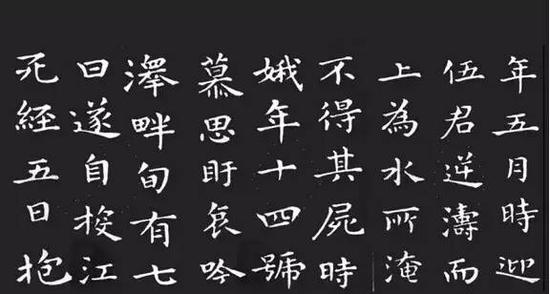 年五月時迎
伍君逆濤而
上為水所淹
不得其屍時
娥年十四號
慕思盱哀吟
澤畔旬有七
日遂自投江
死經五日抱